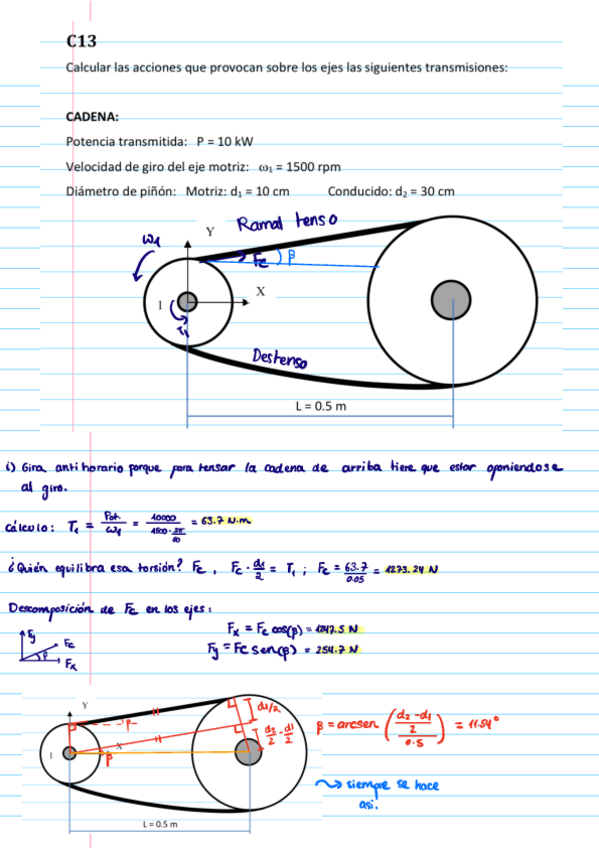 C13
Calcular las acciones que provocan sobre los ejes las siguientes transmisiones:
CADENA:
Potencia transmitida: P = 10 kW
Velocidad de giro del eje motriz: ω₁ = 1500 rpm
Diámetro de piñón: Motriz: d₁ = 10 cm Conducido: d₂ = 30 cm
ω1 Y Ramal tenso
Fc ) β
1 X
T1
Destenso
L = 0.5 m
i) Gira antihorario porque para tensar la cadena de arriba tiene que estar oponiendose
al giro.
cálculo: T₁ = Pot. / ω1 = 10000 / 1500 · 2π/60 = 63.7 N.m
¿Quién equilibra esa torsión? Fc , Fc · d1/2 = T₁ ; Fc = 63.7/0.05 = 1273.24 N
Descomposición de Fc en los ejes:
Fx = Fc cos(β) = 1247.5 N
Fy = Fc sen(β) = 254.7 N
Fy Fc β Fx
Y β d1/2
1 X β d2/2 - d1/2
β = arcsen ( (d2 - d1 / 2) / 0.5 ) = 11.54°
L = 0.5 m
siempre se hace
asi.